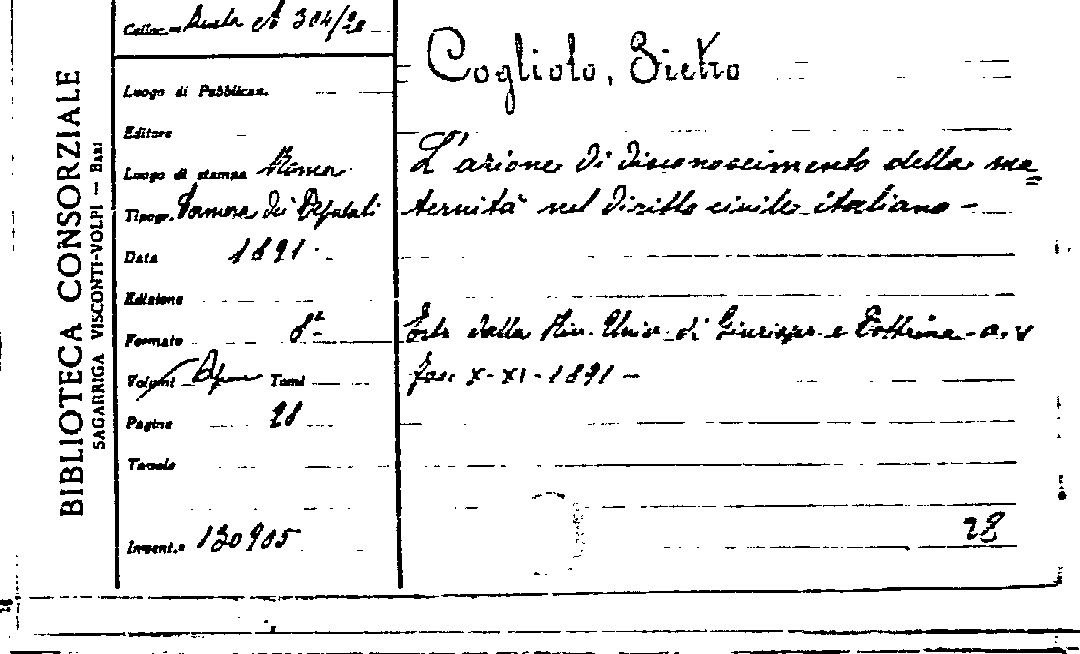 BIBLIOTECA CONSORZIALE
SAGARRIGA VISCONTI-VOLPI — BARI
Colloc.ne Busta A 304/28
Luogo di Pubblicaz.
Editore
Luogo di stampa Roma
Tipogr. Camera dei Deputati
Data 1891.
Edizione
Formato 8º
Volumi Opus Tomi
Pagine 28
Tavole
Invent.o 130905
Cogliolo, Pietro
L'azione di disconoscimento della ma=
ternità nel diritto civile italiano -
Estr. dalla Riv. Univ. di Giurispr. e Dottrina - a. V
fasc X-XI - 1891 -
28